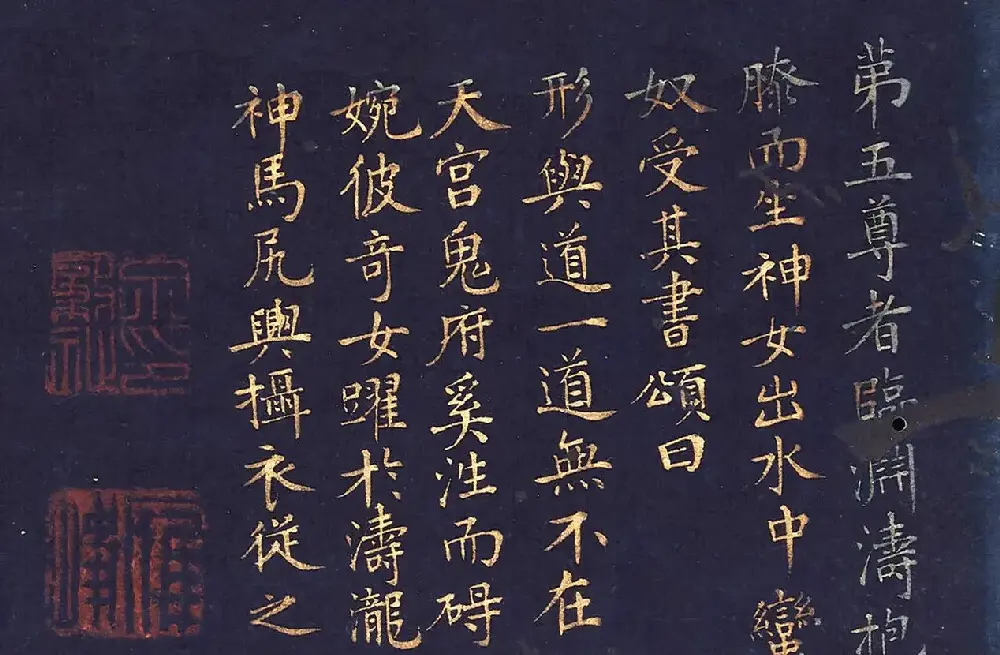 第五尊者臨淵濤抱
膝而坐神女出水中蠻
奴受其書頌曰
形與道一道無不在
天宮鬼府奚往而碍
婉彼奇女躍於濤瀧
神馬尻輿攝衣從之